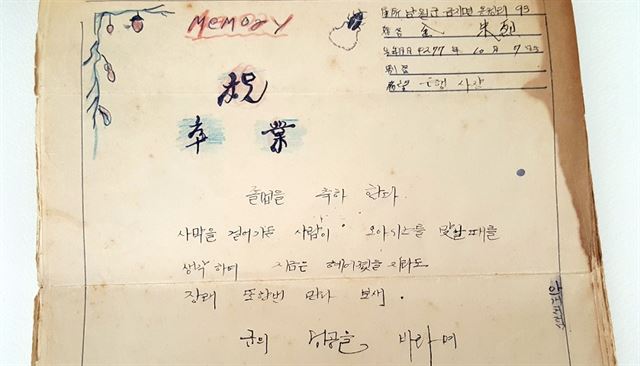 Memory
住所 남원군 금지면 온정리 95
姓名 金
生年月日 4277 年 10 月 7 日
別名
希望 은행 사장
祝
卒業
졸업을 축하 한다
사막을 걸어가는 사람이 오아시스를 맞날때를
생각 하여 지금은 헤어젔을 지라도
장래 또한번 만나 보세.
군의 성공을 바라며